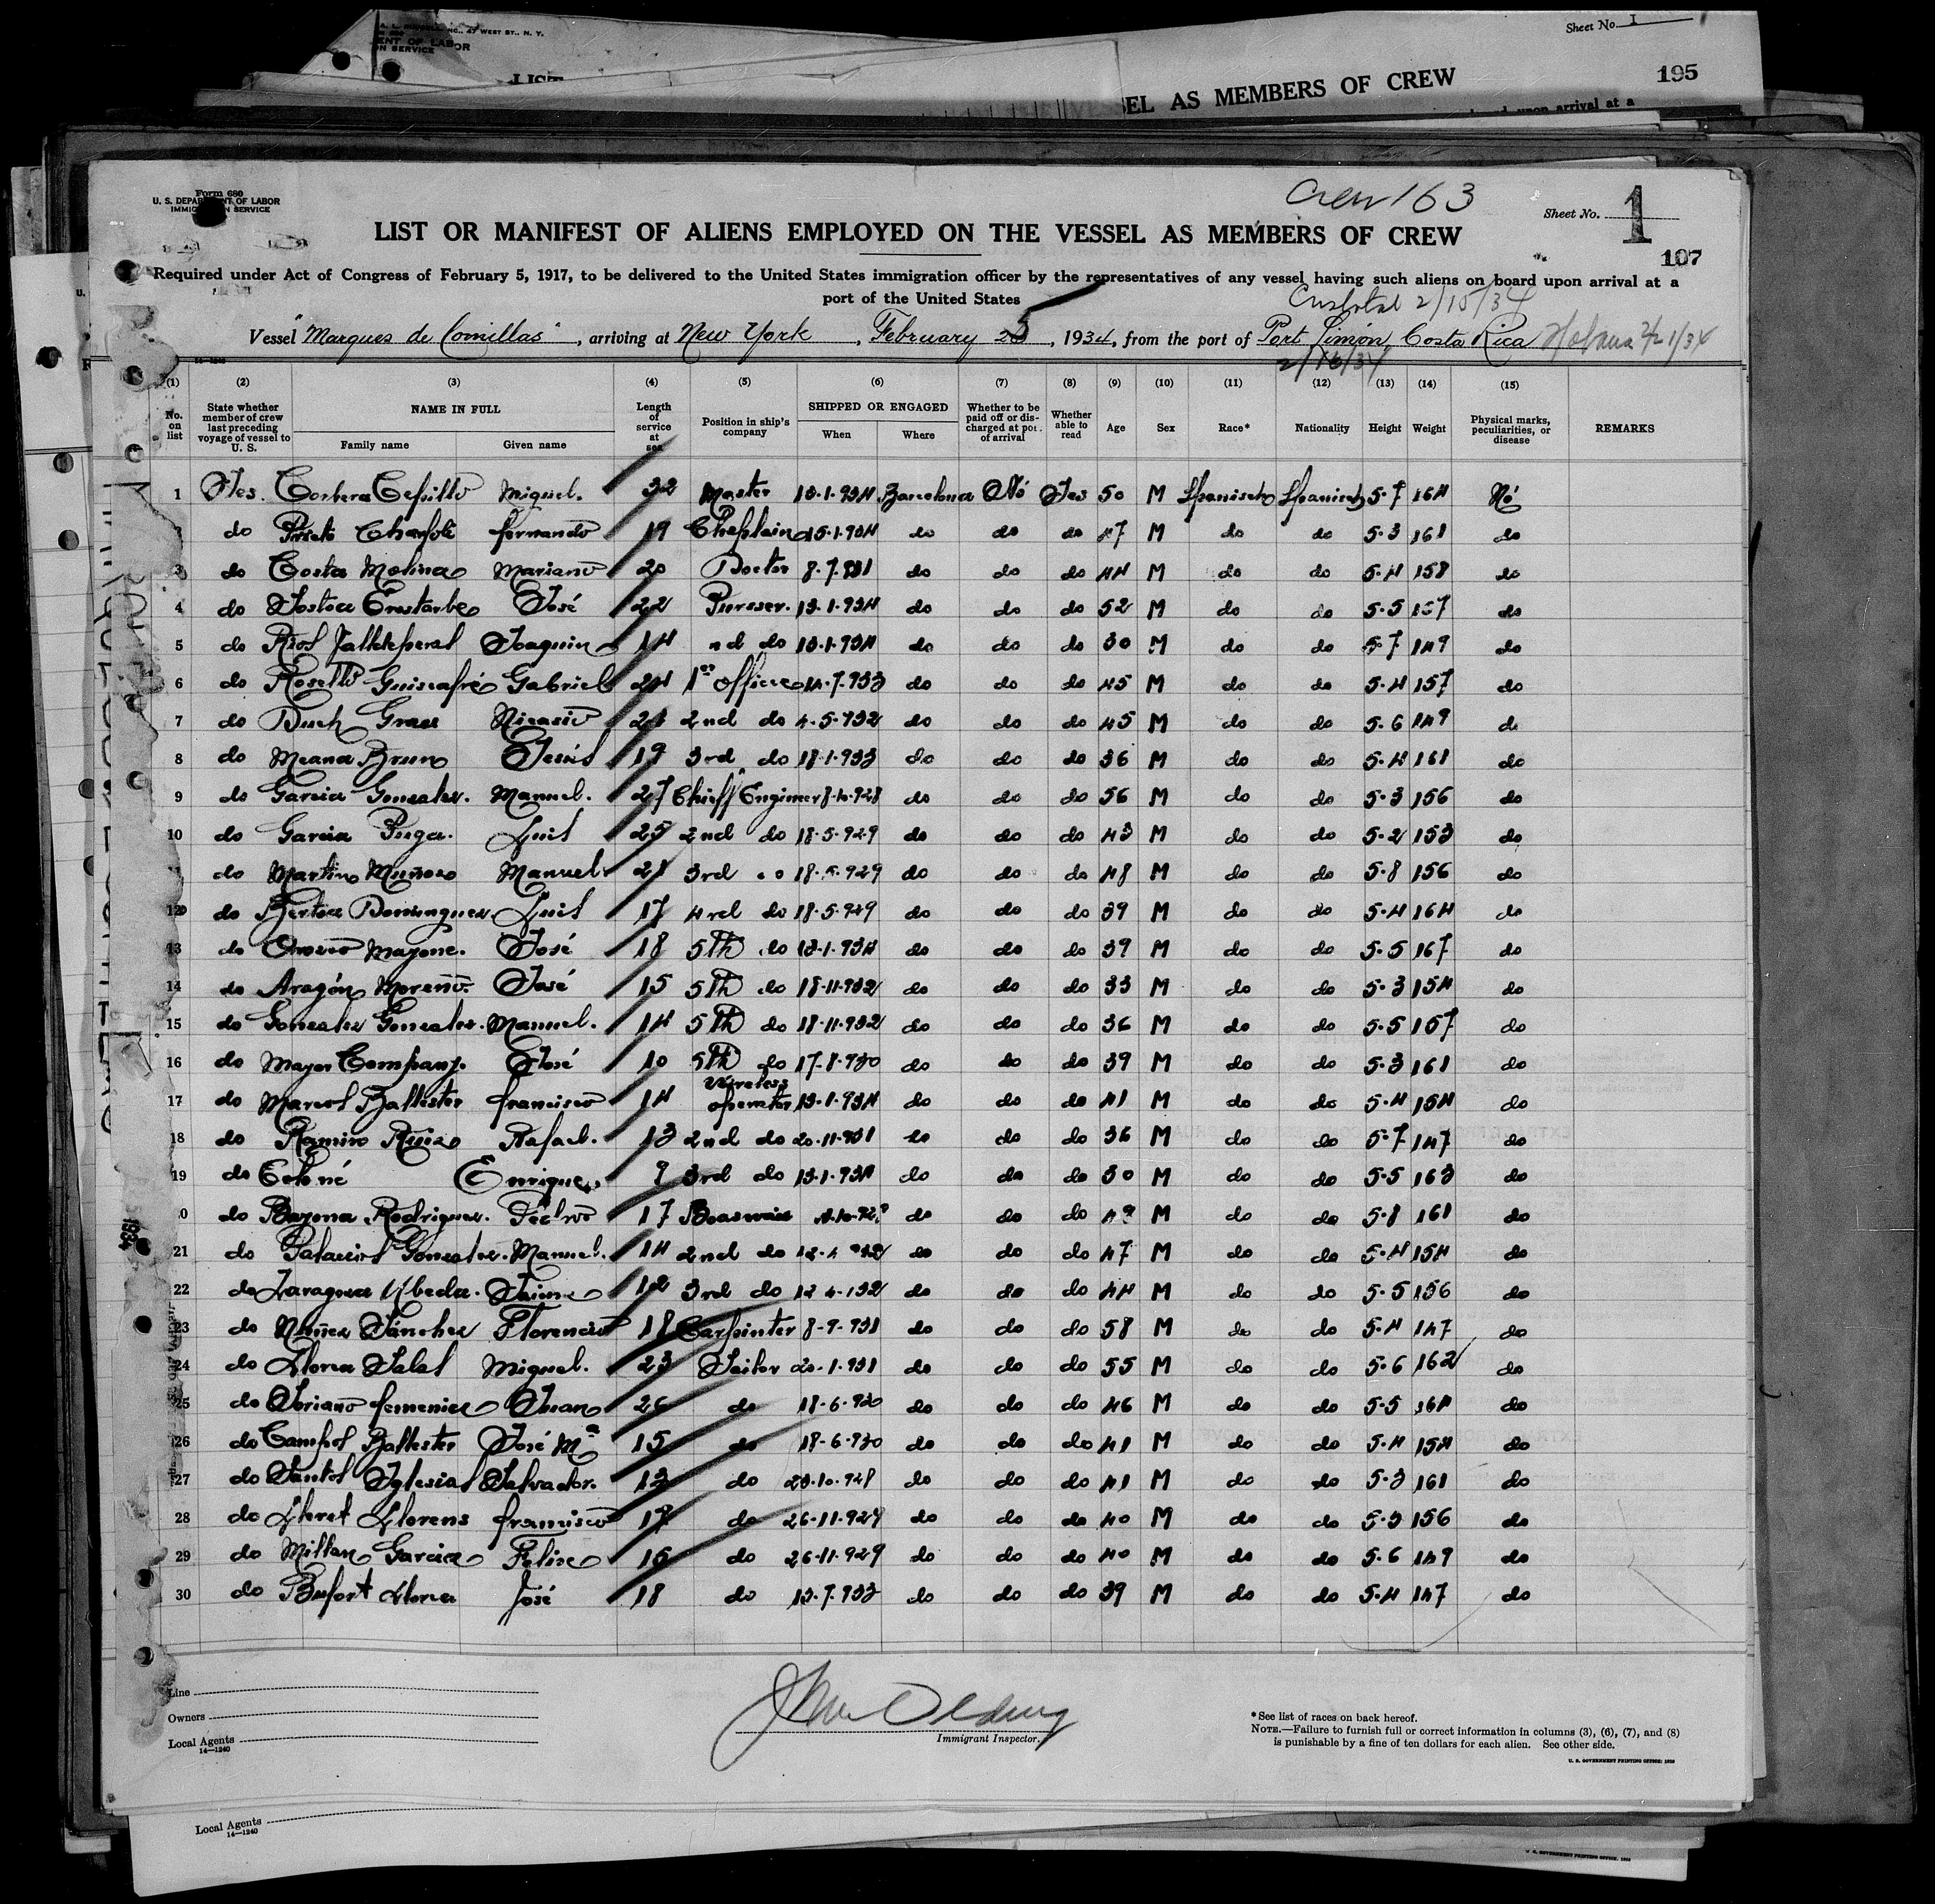 Sheet No. I
195
LIST
EL AS MEMBERS OF CREW
Form 680
U. S. DEPARTMENT OF LABOR
IMMIGRATION SERVICE
Crew 163
Sheet No. 1
LIST OR MANIFEST OF ALIENS EMPLOYED ON THE VESSEL AS MEMBERS OF CREW
107
Required under Act of Congress of February 5, 1917, to be delivered to the United States immigration officer by the representatives of any vessel having such aliens on board upon arrival at a
port of the United States
Cristobal 2/15/34
Vessel "Marques de Comillas", arriving at New York, February 25, 1934, from the port of Port Limón, Costa Rica Habana 2/21/34
2/16/34
(1) (2) (3) (4) (5) (6) (7) (8) (9) (10) (11) (12) (13) (14) (15)
No. on list State whether member of crew last preceding voyage of vessel to U. S. NAME IN FULL Family name Given name Length of service at sea Position in ship's company SHIPPED OR ENGAGED When Where Whether to be paid off or discharged at port of arrival Whether able to read Age Sex Race* Nationality Height Weight Physical marks, peculiarities, or disease REMARKS
1 Yes. Corbera Cepillo Miguel. 32 Master 13-1-934 Barcelona Nó Yes 50 M Spanish Spanish 5-7 164 Nó
do Fernando 19 Chaplain 15-1-934 do do do 47 M do do 5-3 161 do
3 do Costa Molina Mariano 20 Doctor 8-7-931 do do do 44 M do do 5-4 158 do
4 do José 22 Pursser. 13-1-934 do do do 52 M do do 5-5 157 do
5 do Joaquin 14 nd do 13-1-934 do do do 30 M do do 5-7 149 do
6 do Rosello Guiscafré Gabriel 24 1er officer 14-7-933 do do do 45 M do do 5-4 157 do
7 do Nicasio 21 2nd do 4-5-932 do do do 45 M do do 5-6 149 do
8 do Meana Brun Jesús 19 3rd do 18-1-933 do do do 36 M do do 5-4 161 do
9 do Garcia Gonzalez. Manuel. 27 Chieff Enginer 8-10-928 do do do 56 M do do 5-3 156 do
10 do Garcia Puga. Luis 25 2nd do 18-5-929 do do do 43 M do do 5-2 153 do
do Martin Muñoz Manuel. 21 3rd do 18-5-929 do do do 48 M do do 5-8 156 do
12 do Dominguez Luis 17 4rd do 18-5-929 do do do 39 M do do 5-4 164 do
13 do José 18 5th do 13-1-934 do do do 39 M do do 5-5 167 do
14 do Aragón Moreno. José 15 5th do 18-11-932 do do do 33 M do do 5-3 154 do
15 do Gonzalez Gonzalez. Manuel. 14 5th do 18-11-932 do do do 36 M do do 5-5 157 do
16 do Mayor Company. José 10 5th do 17-8-930 do do do 39 M do do 5-3 161 do
17 do Marcos Ballester Francisco 14 Wireless operator 13-1-934 do do do 41 M do do 5-4 154 do
18 do Ramiro Ruiz Rafael. 13 2nd do 20-11-931 do do do 36 M do do 5-7 147 do
19 do Enrique. 9 3rd do 13-1-934 do do do 30 M do do 5-5 163 do
do Bazona Rodriguez. Pedro 17 do do do 49 M do do 5-8 161 do
21 do Palacios Gonzalez. Manuel. 14 2nd do 12-4-932 do do do 47 M do do 5-4 154 do
22 do Zaragoza Ubeda. Jaime 12 3rd do 12-4-932 do do do 44 M do do 5-5 156 do
23 do Nuñez Sánchez Florencio 18 Carpinter 8-9-931 do do do 58 M do do 5-4 147 do
24 do Llorca Salas Miguel. 23 Sailor 20-1-931 do do do 55 M do do 5-6 162 do
25 do Soriano Femenia Juan 26 do 18-6-930 do do do 46 M do do 5-5 164 do
26 do Campos Ballester José Mª 15 do 18-6-930 do do do 41 M do do 5-4 154 do
27 do Santos Iglesias Salvador. 13 do 23-10-928 do do do 41 M do do 5-3 161 do
28 do Lloret Llorens Francisco 17 do 26-11-929 do do do 40 M do do 5-3 156 do
29 do Millan Garcia Felix 16 do 26-11-929 do do do 40 M do do 5-6 149 do
30 do Bufort Llorca José 18 do 13-7-933 do do do 39 M do do 5-4 147 do
Line
Owners
Local Agents
14—1240
Immigrant Inspector.
*See list of races on back hereof.
NOTE.—Failure to furnish full or correct information in columns (3), (6), (7), and (8)
is punishable by a fine of ten dollars for each alien. See other side.
Local Agents
14—1240